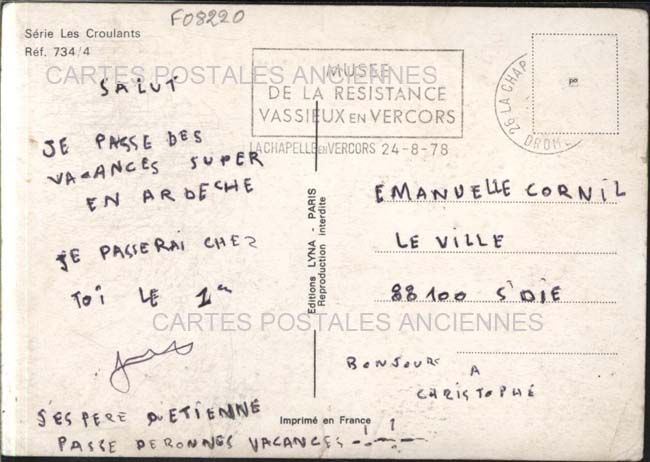 F08220
Série Les Croulants
Réf. 734/4
CARTES POSTALES ANCIENNES
SALUT
JE PASSE DES
VACANCES SUPER
EN ARDECHE
JE PASSERAI CHEZ
TOI LE 1er
J'ESPERE QU'ETIENNE
PASSE DE BONNES VACANCES
MUSEE
DE LA RESISTANCE
VASSIEUX EN VERCORS
LA CHAPELLE EN VERCORS 24-8-78
26 LA CHAP
DROME
Editions LYNA - PARIS
Reproduction interdite
EMANUELLE CORNIL
LE VILLE
88100 S'DIE
CARTES POSTALES ANCIENNES
BONJOUR A
CHRISTOPHE
Imprimé en France